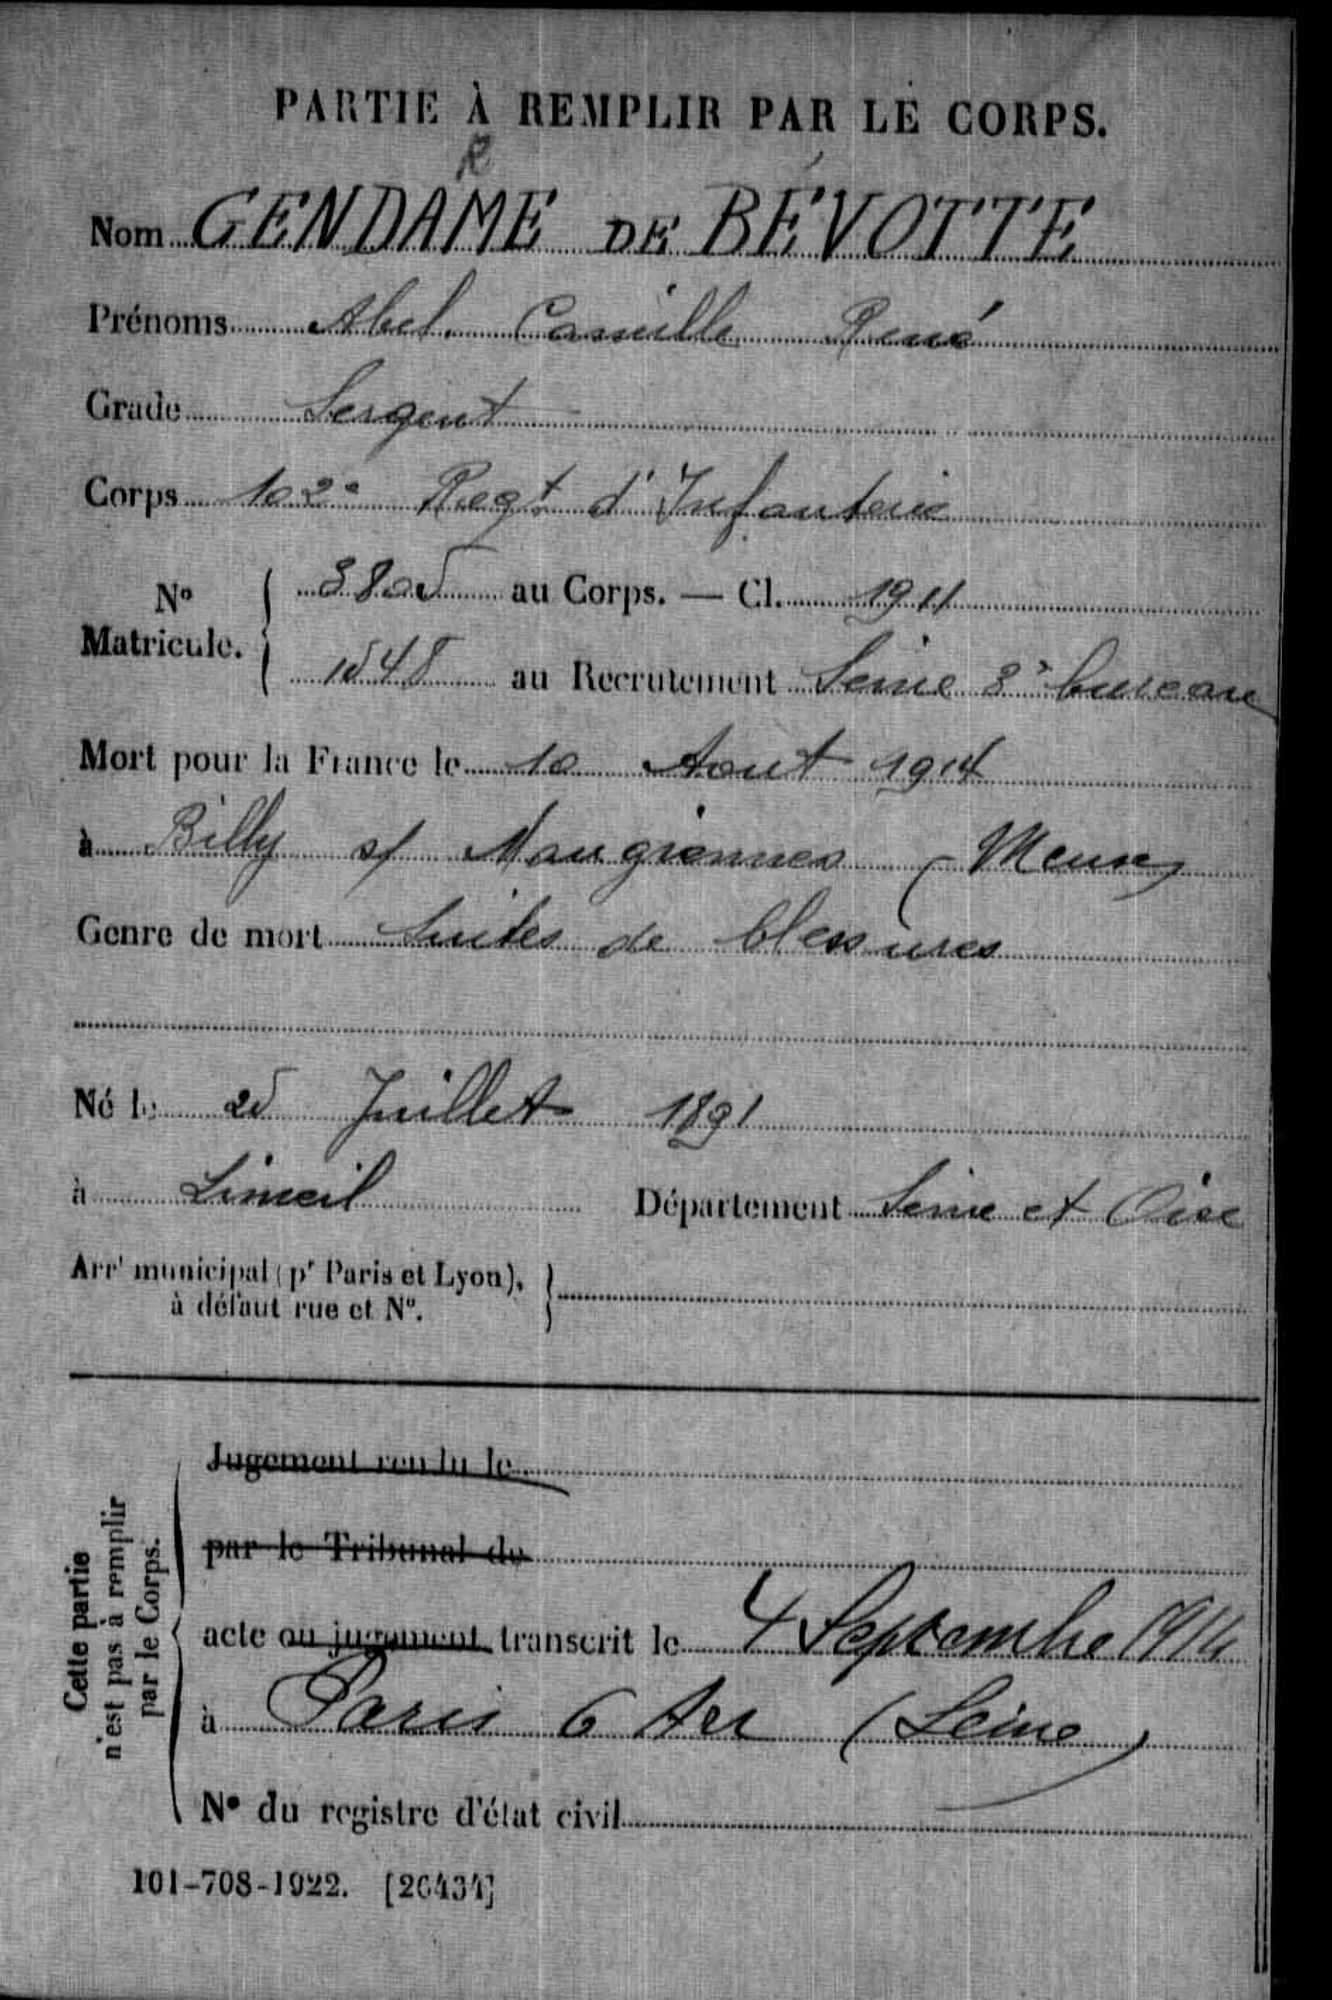 PARTIE À REMPLIR PAR LE CORPS.
R
Nom GENDAME DE BÉVOTTE
Prénoms Abel Camille René
Grade Sergent
Corps 102e Regt d'Infanterie
No Matricule. 3805 au Corps. — Cl. 1911
1548 au Recrutement Seine 3e bureau
Mort pour la France le 10 Aout 1914
à Billy s/ Mangiennes (Meuse)
Genre de mort Suites de blessures
Né le 25 Juillet 1891
à Limeil Département Seine et Oise
Arrt municipal (pr Paris et Lyon),
à défaut rue et No.
Cette partie
n'est pas à remplir
par le Corps.
Jugement rendu le
par le Tribunal de
acte ou jugement transcrit le 4 Septembre 1914
à Paris 6 Arr (Seine)
No du registre d'état civil
101-708-1922. [26434]